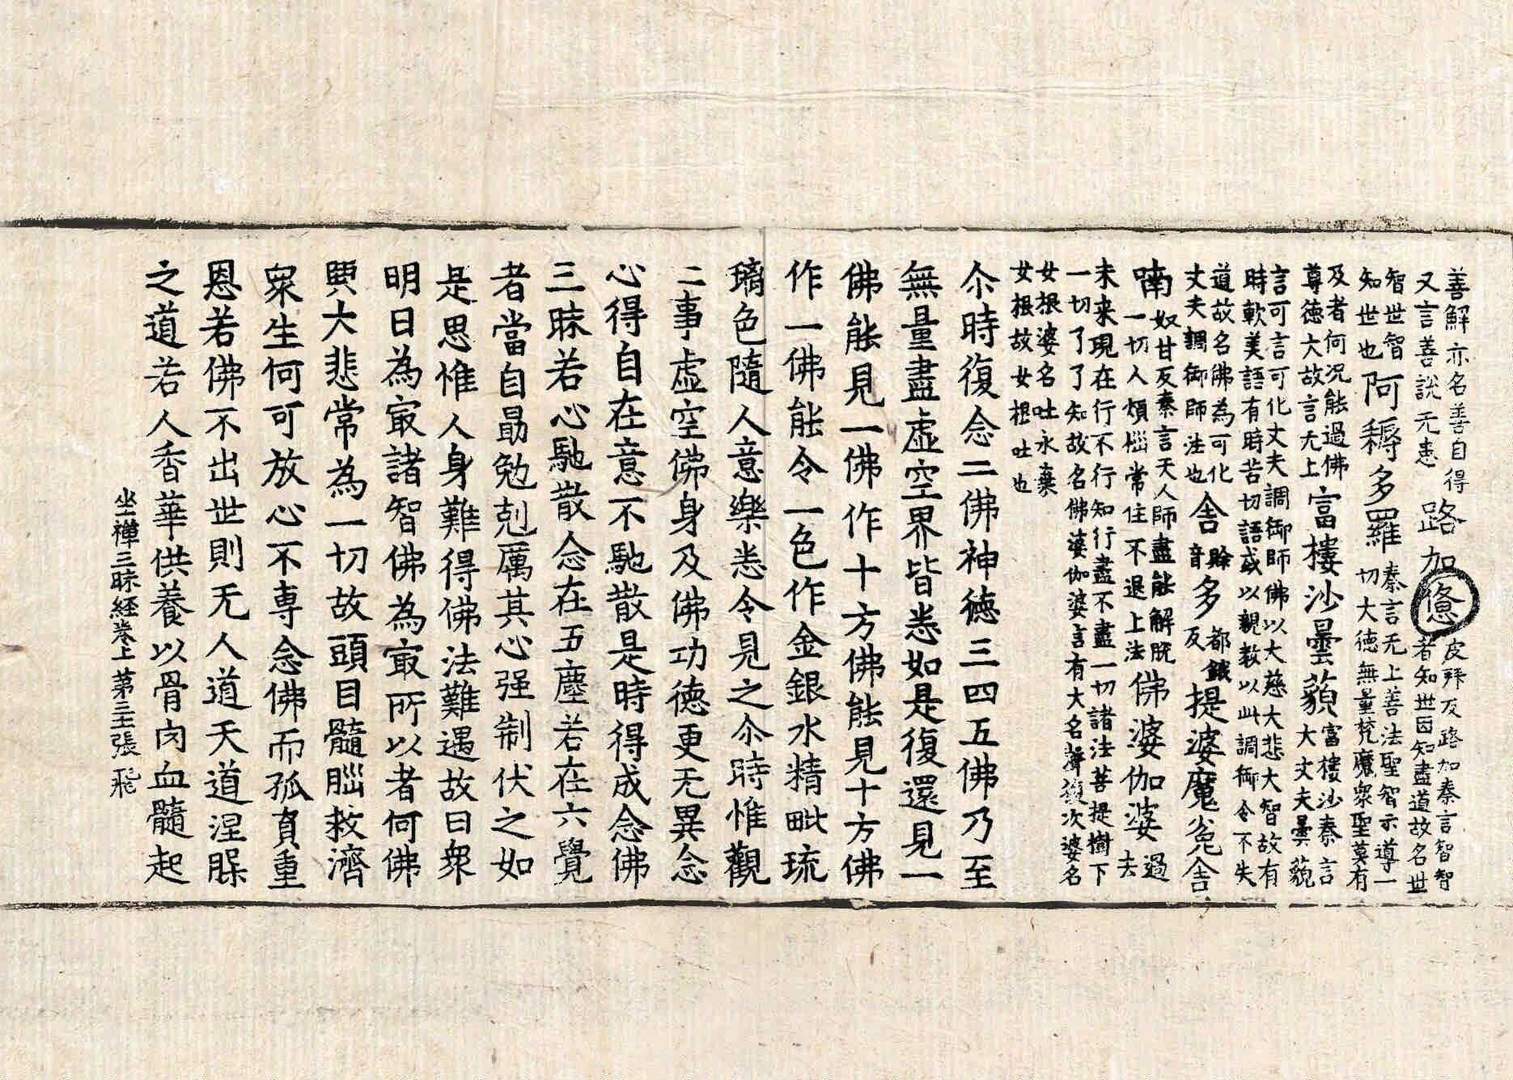 善解亦名善自得
又言善說无恚
路加憊
皮拜反路加秦言智智
者知世因知盡道故名世
智世智
知世也
阿耨多羅
秦言无上善法聖智示導一
切大德無量梵魔衆聖莫有
及者何况能過佛
尊德大故言无上
富樓沙曇藐
富樓沙秦言
大丈夫曇藐
言可言可化丈夫調御師佛以大慈大悲大智故有
時軟美語有時苦切語或以親教以此調御令不失
道故名佛為可化
丈夫調御師法也
舍賖音多都餓反提婆魔㝹舍
喃
奴甘反秦言天人師盡能解脫
一切人煩惱常住不退上法
佛婆伽婆
過
去
未來現在行不行知行盡不盡一切諸法菩提樹下
一切了了知故名佛婆伽婆言有大名聲復次婆名
女根婆名吐永棄
女根故女根吐也
尒時復念二佛神德三四五佛乃至
無量盡虛空界皆悉如是復還見一
佛能見一佛作十方佛能見十方佛
作一佛能令一色作金銀水精毗琉
璃色隨人意樂悉令見之尒時惟觀
二事虛空佛身及佛功德更无異念
心得自在意不馳散是時得成念佛
三昧若心馳散念在五塵若在六覺
者當自勗勉剋厲其心强制伏之如
是思惟人身難得佛法難遇故曰衆
明日為㝡諸智佛為㝡所以者何佛
興大悲常為一切故頭目髓腦救濟
衆生何可放心不專念佛而孤負重
恩若佛不出世則无人道天道涅槃
之道若人香華供養以骨肉血髓起
坐禪三昧經卷上　第三十張　飛